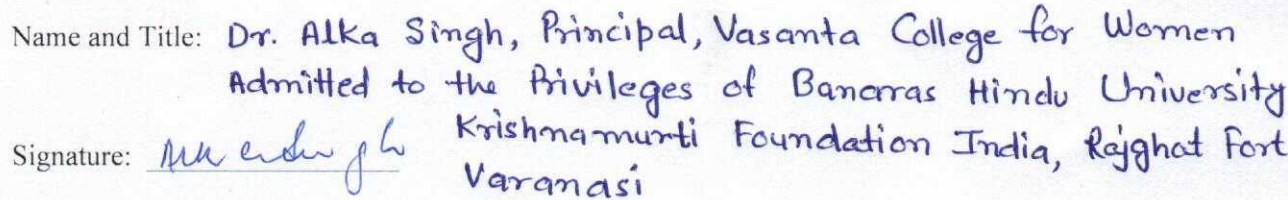 Name and Title: Dr. Alka Singh, Principal, Vasanta College for Women
Admitted to the Privileges of Banaras Hindu University
Krishnamurti Foundation India, Rajghat Fort
Signature:
Varanasi